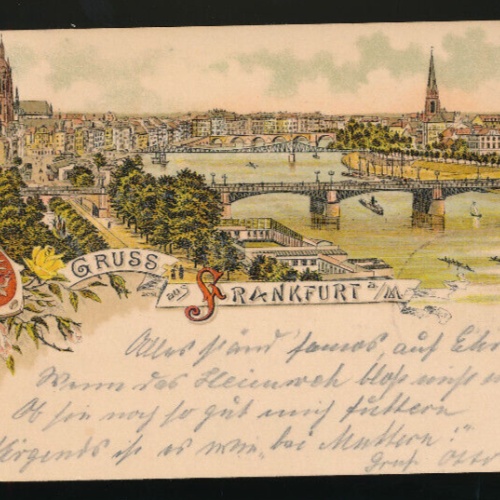 GRUSS
aus FRANKFURT a/M.
Alles famos, auf Ehr
Wenn das Heimweh bloß nicht w
Ob sie noch so gut mich futtern
Nirgends ist es wie bei Muttern!"
Gruß Otto